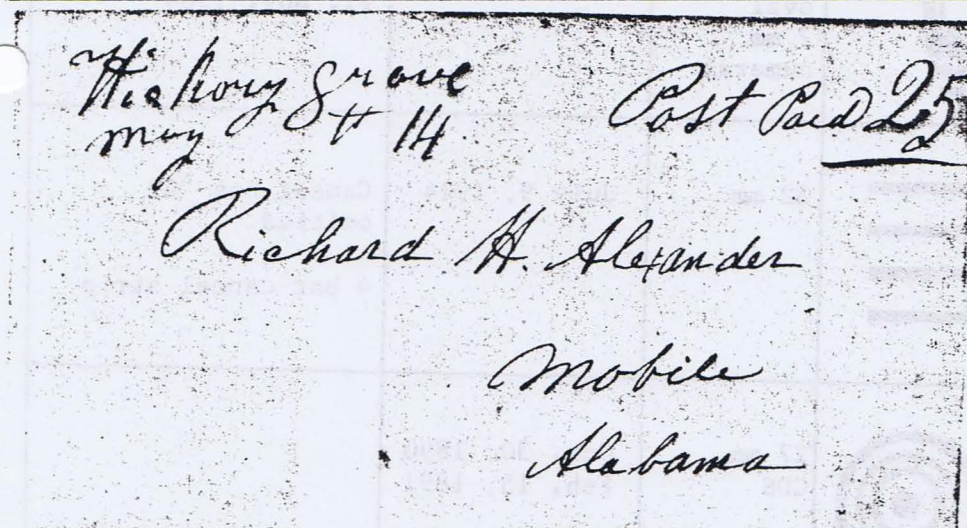 Hickory grove
may th 14
Post Paid 25
Richard H. Alexander
Mobile
Alabama